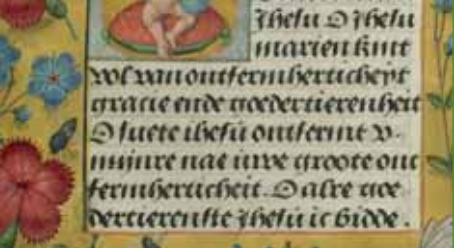 Ihesu O Ihesu
marien kint
vol van ontfermherticheyt
gracie ende goedertierenheit
O suete ihesu ontfermt v.
mijnre nae uwe groote ont
fermherticheit. O alre goe
dertierenste Ihesu ic bidde.